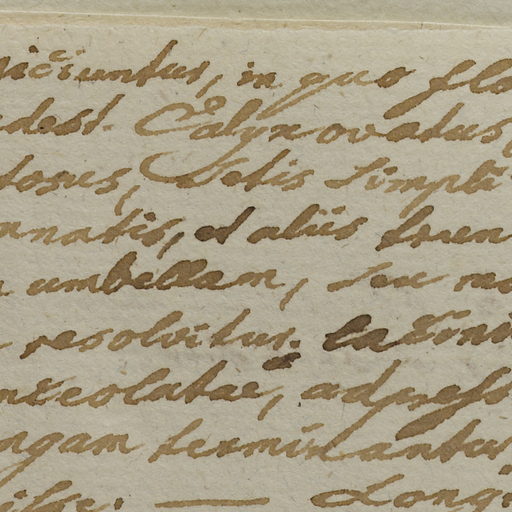 iiciuntur, in quo flo
dest. Calyx ovatus,
tosus, Setis simpli
nnatis, et aliis trun
umbellam, seu ra
resolvitur; lacini
nceolatae, adpress
ngam terminantur
Long